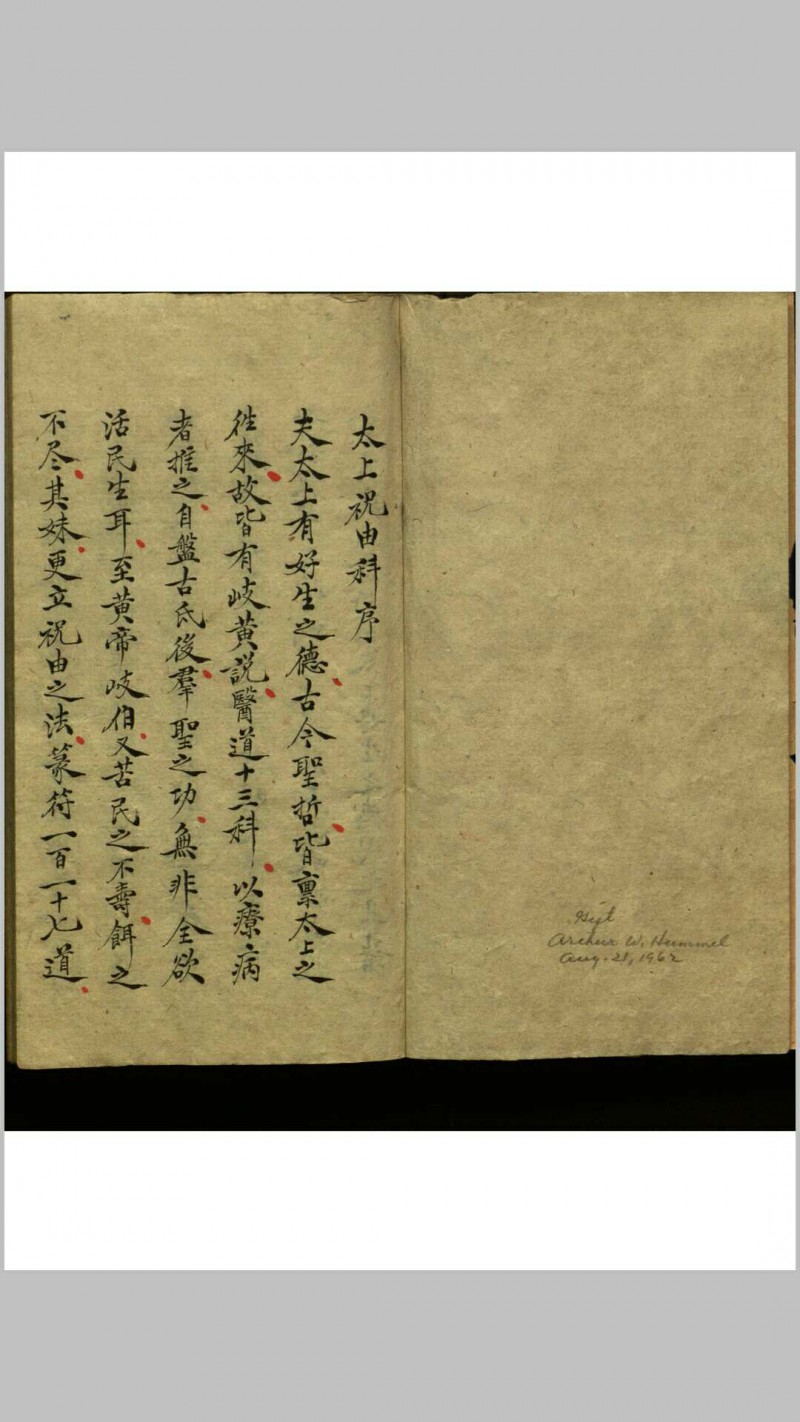 太上祝由科序
夫太上有好生之德古今聖哲皆禀太上之
徃來故皆有岐黃說醫道十三科以療病
者推之自盤古氏後羣聖之功無非全欲
活民生耳至黃帝岐伯又苦民之不壽餌之
不尽其妹更立祝由之法篆符一百一十七道
Gift
Arthur W. Hummel
Aug. 21, 1962